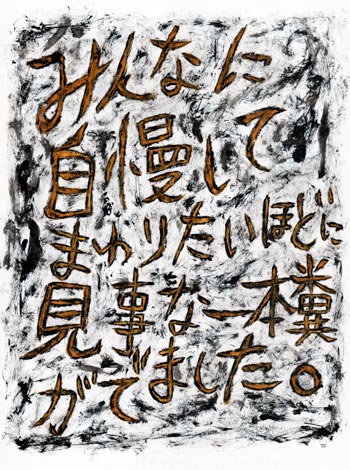 みんなに
自慢して
まわりたいほどに
見事な一本糞
がでました。